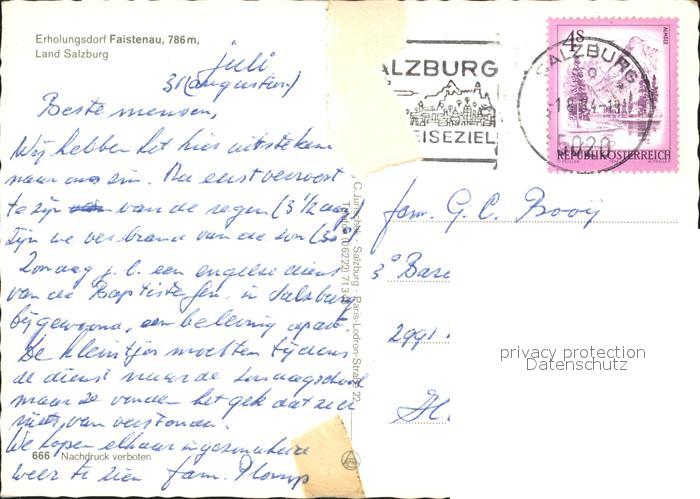 Erholungsdorf Faistenau, 786 m,
Land Salzburg
juli
31 (augustus)
Beste mensen,
Wij hebben het hier uitstekend
naar ons zin. Na eerst verroest
te zijn van de regen (3 1/2 dag)
zijn we verbrand van de zon
Zondag j.l. een engelse dienst
van de Baptistengem. in Salzburg
bijgewoond, een belevenis apart.
De kleintjes mochten tijdens
de dienst naar de zondagschool
maar ze vonden het gek dat ze er
niets van verstonden.
We hopen elkaar in gezondheid
weer te zien fam. Plomp
666 Nachdruck verboten
C. Jurischek · Salzburg · Paris-Lodron-Straße 22
Telefon (06222) 71 3
ALZBURG
EISEZIEL
SALZBURG
5020
4 S
ALMSEE
REPUBLIK ÖSTERREICH
fam. G. C. Booij
3e Bare
2991
privacy protection
Datenschutz